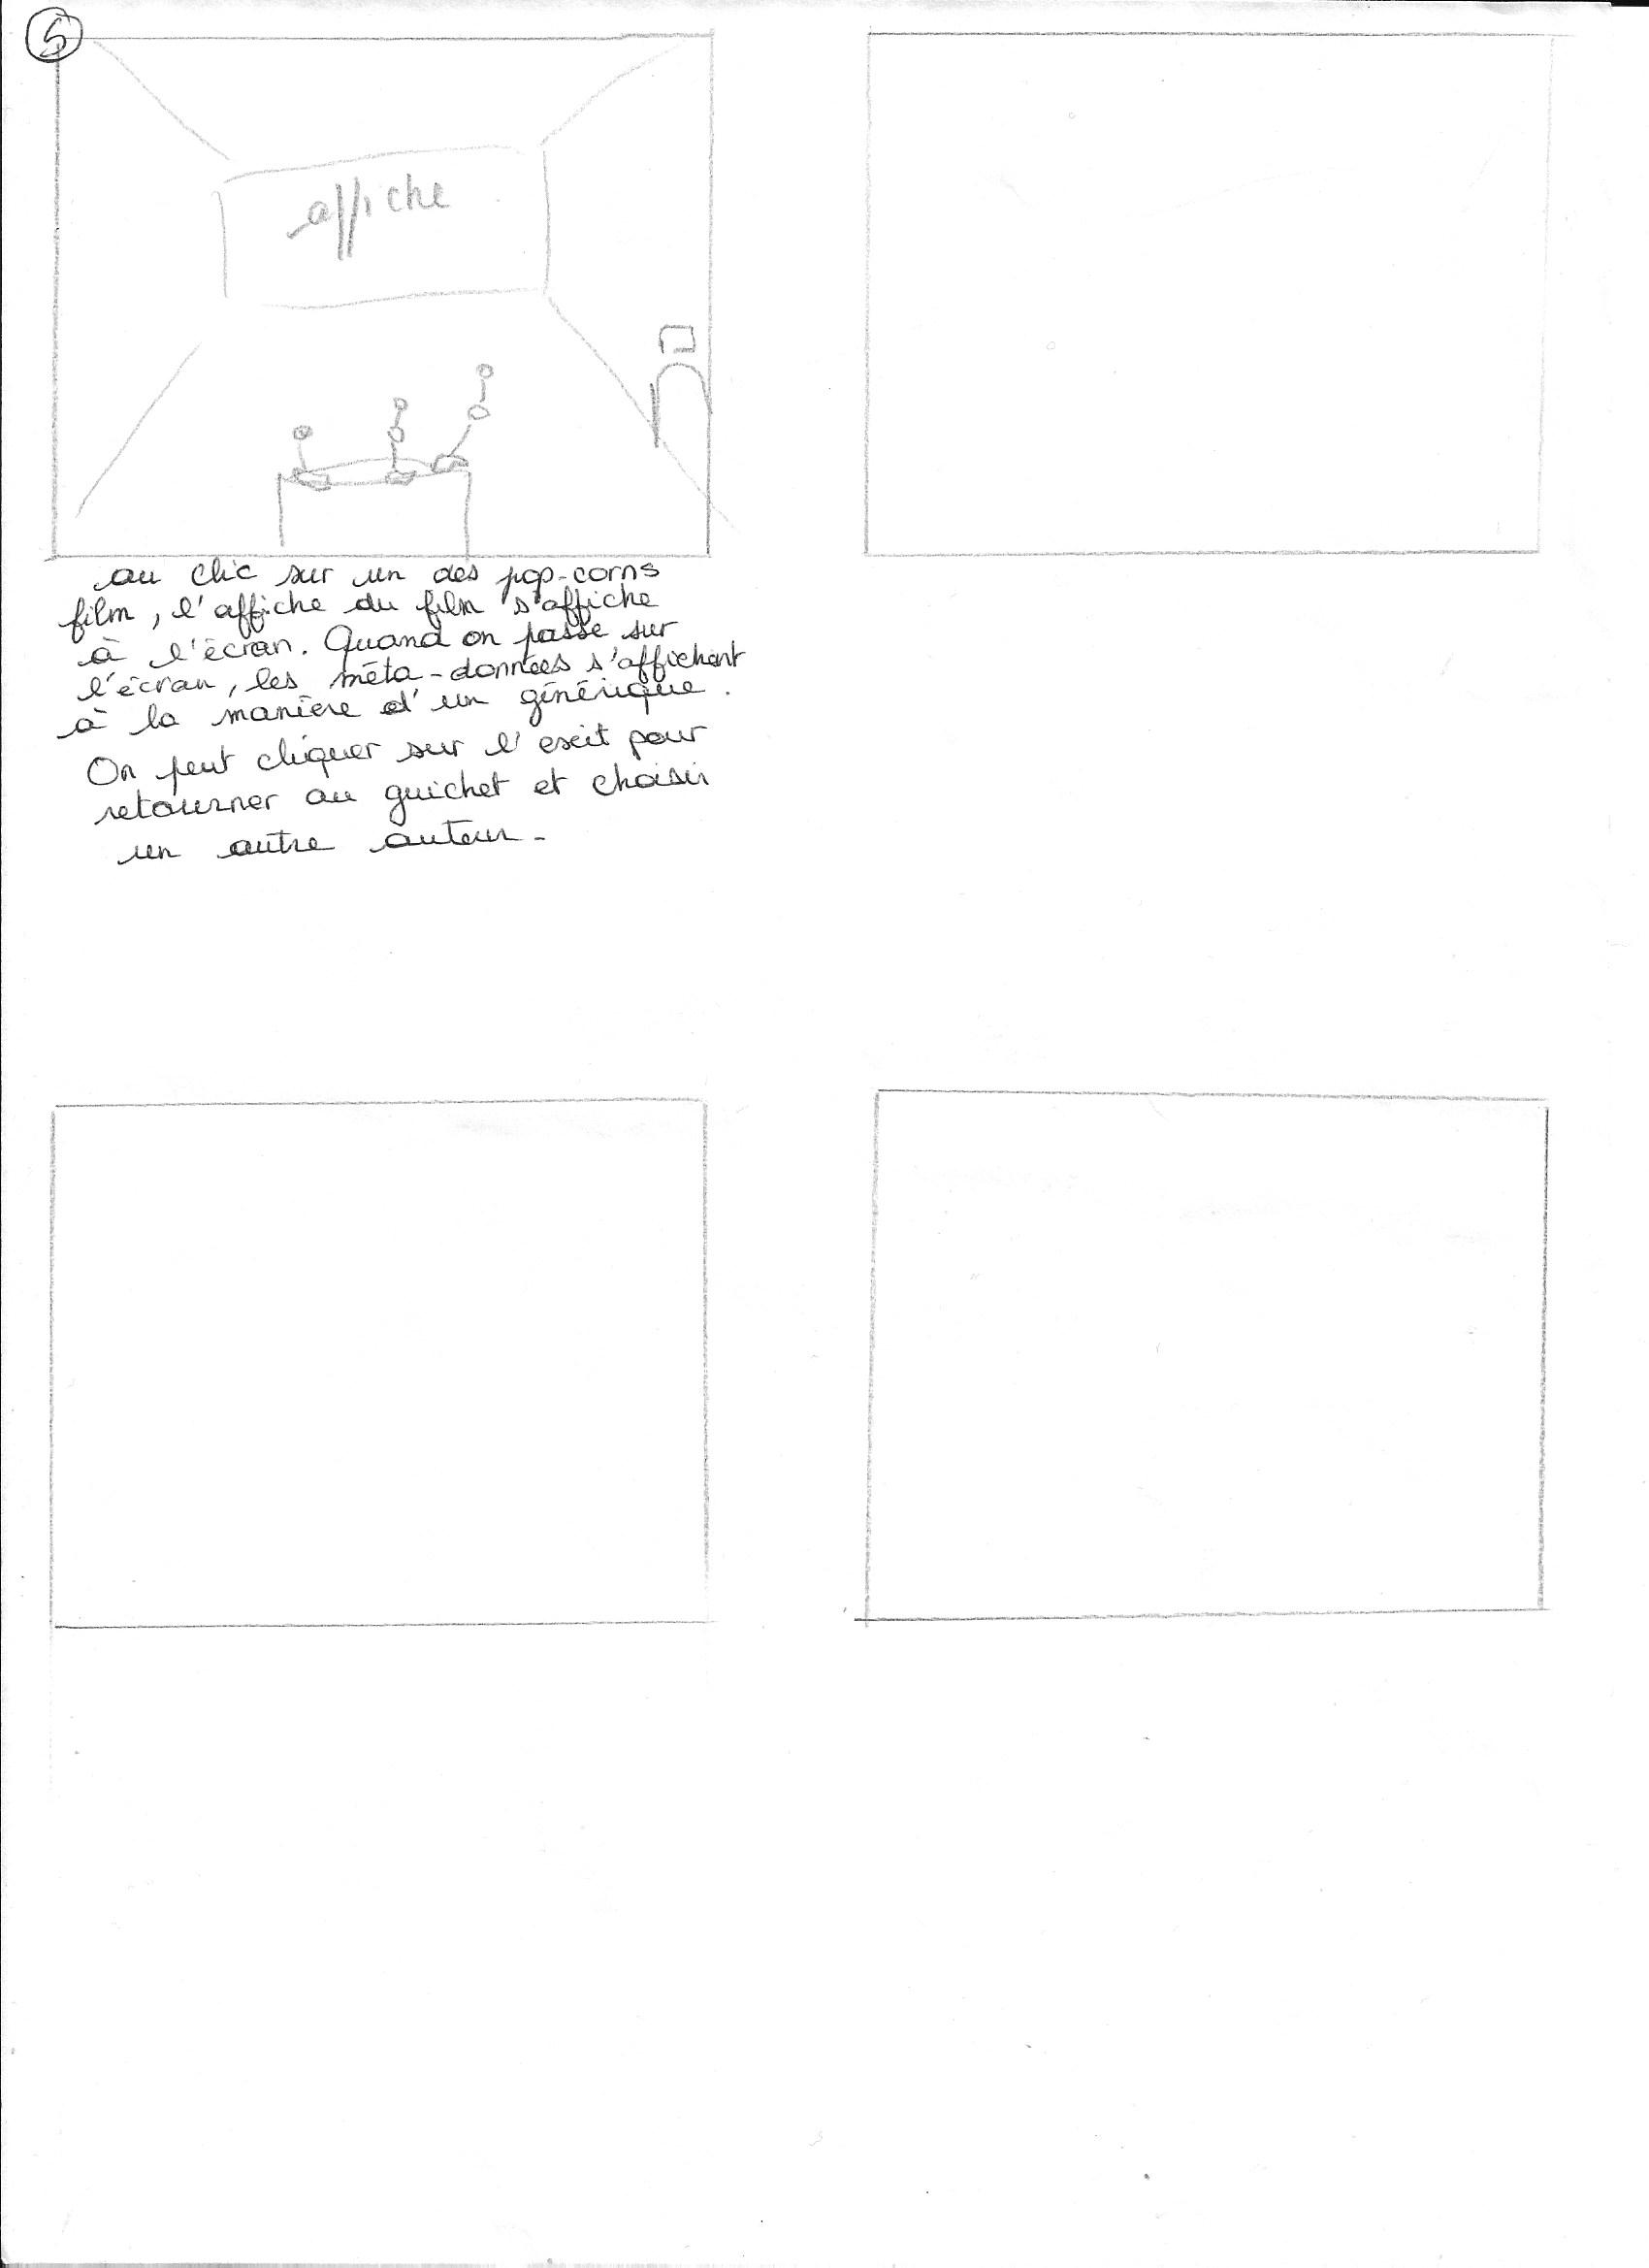 5
affiche
au clic sur un des pop-corns
film, l'affiche du film s'affiche
à l'écran. Quand on passe sur
l'écran, les méta-données s'affichent
à la manière d'un générique.
On peut cliquer sur l'exit pour
retourner au guichet et choisir
un autre auteur.